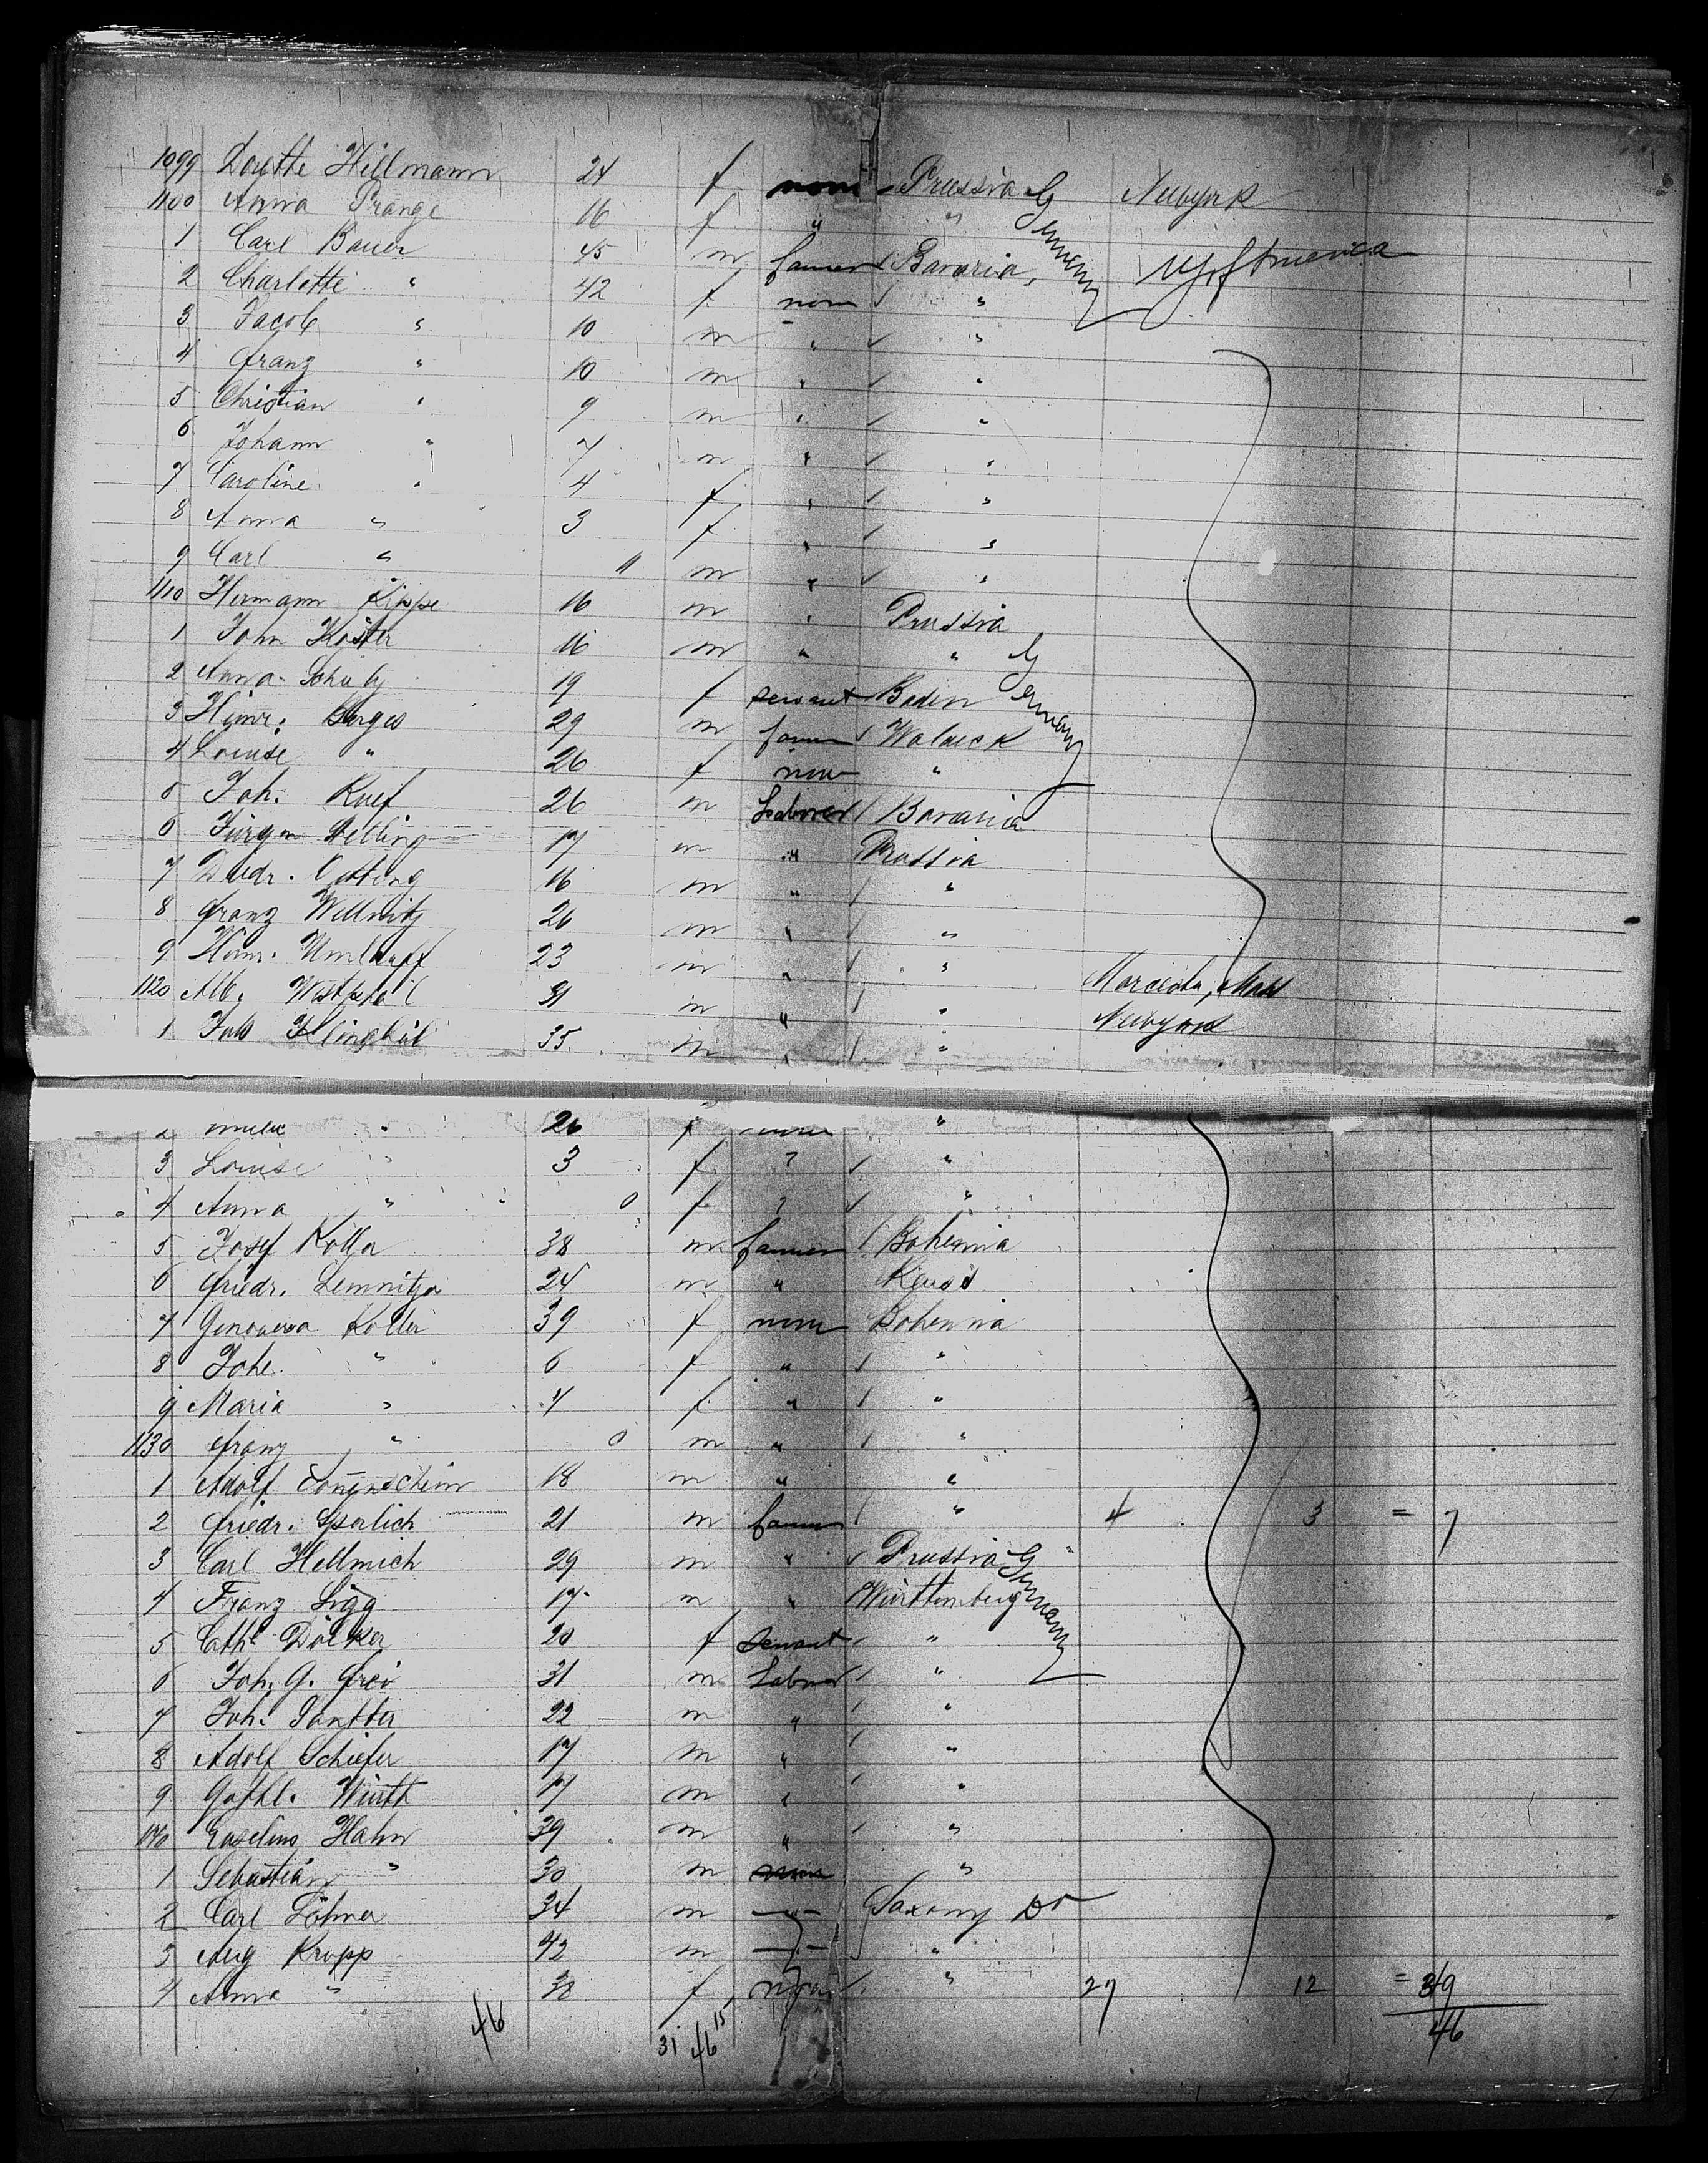 1099 Dorette Hillmann 24 f none Prussia Germany Newyork
1100 Anna Prange 16 f " "
1 Carl Bauer 45 m farmer Bavaria, America
2 Charlotte " 42 f none "
3 Jacob " 10 m " "
4 Franz " 10 m " "
5 Christian " 9 m " "
6 Johann " 7 m " "
7 Caroline " 4 f " "
8 Anna " 3 f " "
9 Carl " 11 m " "
1110 Hermann Kippe 16 m " Prussia
1 John Köster 16 m " " Germany
2 Anna Schulz 19 f servant Baden
3 Heinr. Borges 29 m farmer Waldeck
4 Louise " 26 f none "
5 Joh. Ruef 26 m Laborer Bavaria
6 Jürgen Detting 17 m " Prussia
7 Diedr. 16 m " "
8 Franz Wellnitz 26 m " "
9 Heinr. Umlauff 23 m " "
1120 Alb. Westphal 31 m " "
1 Jak Klinghöl 35 m " " Newyork
2 " 26 f none "
3 Louise " 3 f " "
4 Anna " 0 f " "
5 Josef Koller 38 m farmer Bohemia
6 Friedr. Lemnitzer 24 m " Reuss
7 Genoveva Koller 39 f none Bohemia
8 Johe. " 6 f " "
9 Maria " 4 f " "
1130 Franz " 0 m " "
1 Adolf Sonnenschein 18 m " "
2 Friedr. Sperlich 21 m farmer " 4 3 = 7
3 Carl Hellmich 29 m " Prussia Germany
4 Franz Sigg 17 m " Württemberg
5 Cath. Döcker 20 f servant "
6 Joh. G. Frei 31 m Laborer "
7 Joh. Santter 22 m " "
8 Adolf Schiefer 17 m " "
9 Gothl. Wirth 17 m " "
1140 Hahn 39 m " "
1 Sebastian " 30 m "
2 Carl Löhner 34 m -"- Saxony Do
3 Aug Kropp 42 m -"- "
4 Anna " 38 f " 27 12 = 39
46 31 46 15 46